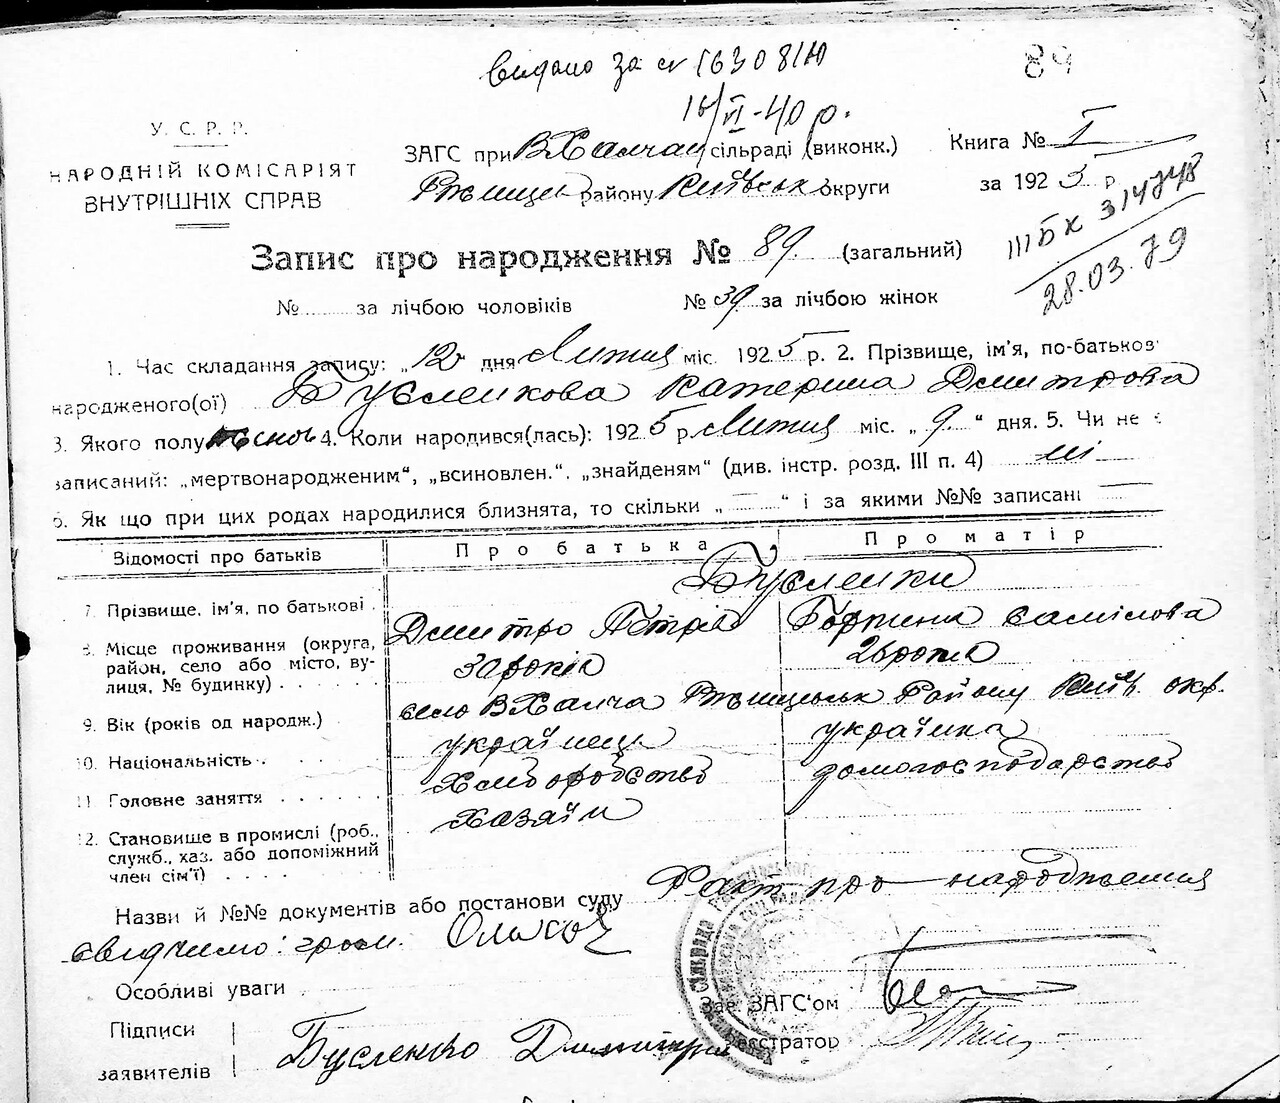 видано за № 163081Ю
89
16/VI-40 р.
У. С. Р. Р.
НАРОДНІЙ КОМІСАРІЯТ
ВНУТРІШНІХ СПРАВ
ЗАГС при ВХалчан сільраді (виконк.)
Ржищев району Київськ округи
Книга № I
за 1925 р
III БК 314748
28.03.79
Запис про народження № 89. (загальний)
№ за лічбою чоловіків № 39 за лічбою жінок
1. Час складання запису: „12" дня Лютия міс. 1925 р. 2. Прізвище, ім'я, по-батьков
народженого(ої) Бусленкова Катерина Дмитрова
3. Якого полу жіноч 4. Коли народився(лась): 1925 р. Лютия міс. „9." дня. 5. Чи не є
записаний: „мертвонародженим“, „всиновлен.“. „знайденям“ (див. інстр. розд. III п. 4) ні
6. Як що при цих родах народилися близнята, то скільки „ — “ і за якими №№ записані —
Відомості про батьків Про батька Про матір
Бусленки
7. Прізвище, ім'я, по батькові .
Дмитро Петрів Горпина Самілова
8. Місце проживання (округа, район, село або місто, вулиця, № будинку) . . . .
30 років 26 років
9. Вік (років од народж.) .
село ВХалча Ржищівськ Району Київ. окр.
10. Національність .
українець українка
11. Головне заняття . . . . . .
Хліборобство домогосподарство
12. Становище в промислі (роб., служб., хаз. або допоміжний член сім'ї) . . . .
Хазяїн
Назви й №№ документів або постанови суду Факт про народження
свідчимо: гром.
Особливі уваги
Зав ЗАГС'ом
Підписи
заявителів
Бусленко Димитрий
Реєстратор